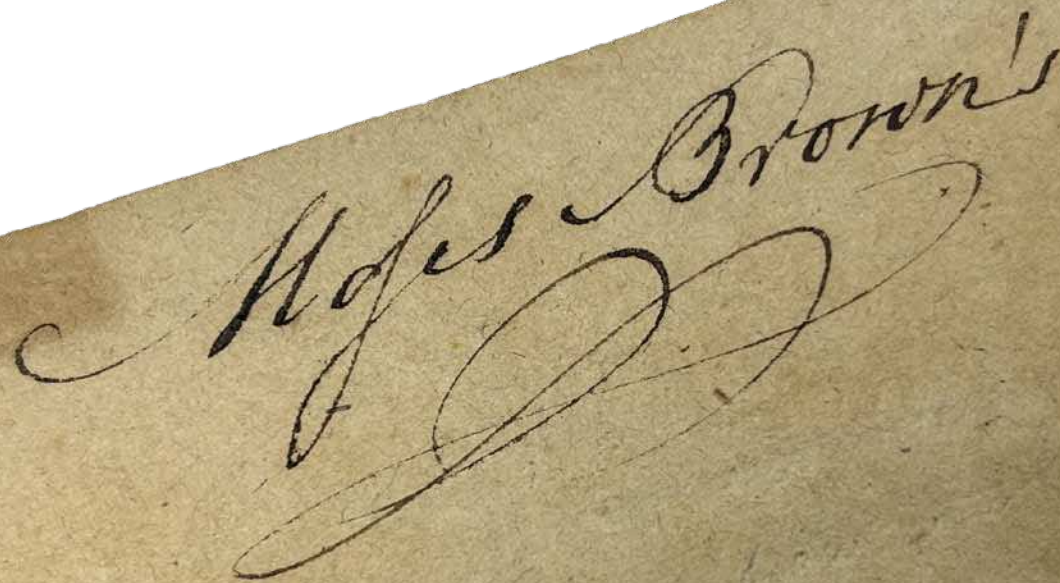 Moſes Brown's